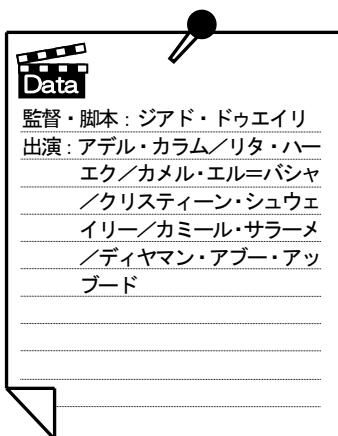 Data
監督・脚本：ジアド・ドゥエイリ
出演：アデル・カラム／リタ・ハー
エク／カメル・エル＝バシャ
／クリスティーン・シュウェ
イリー／カミール・サラーメ
／ディヤマン・アブー・アッ
ブード